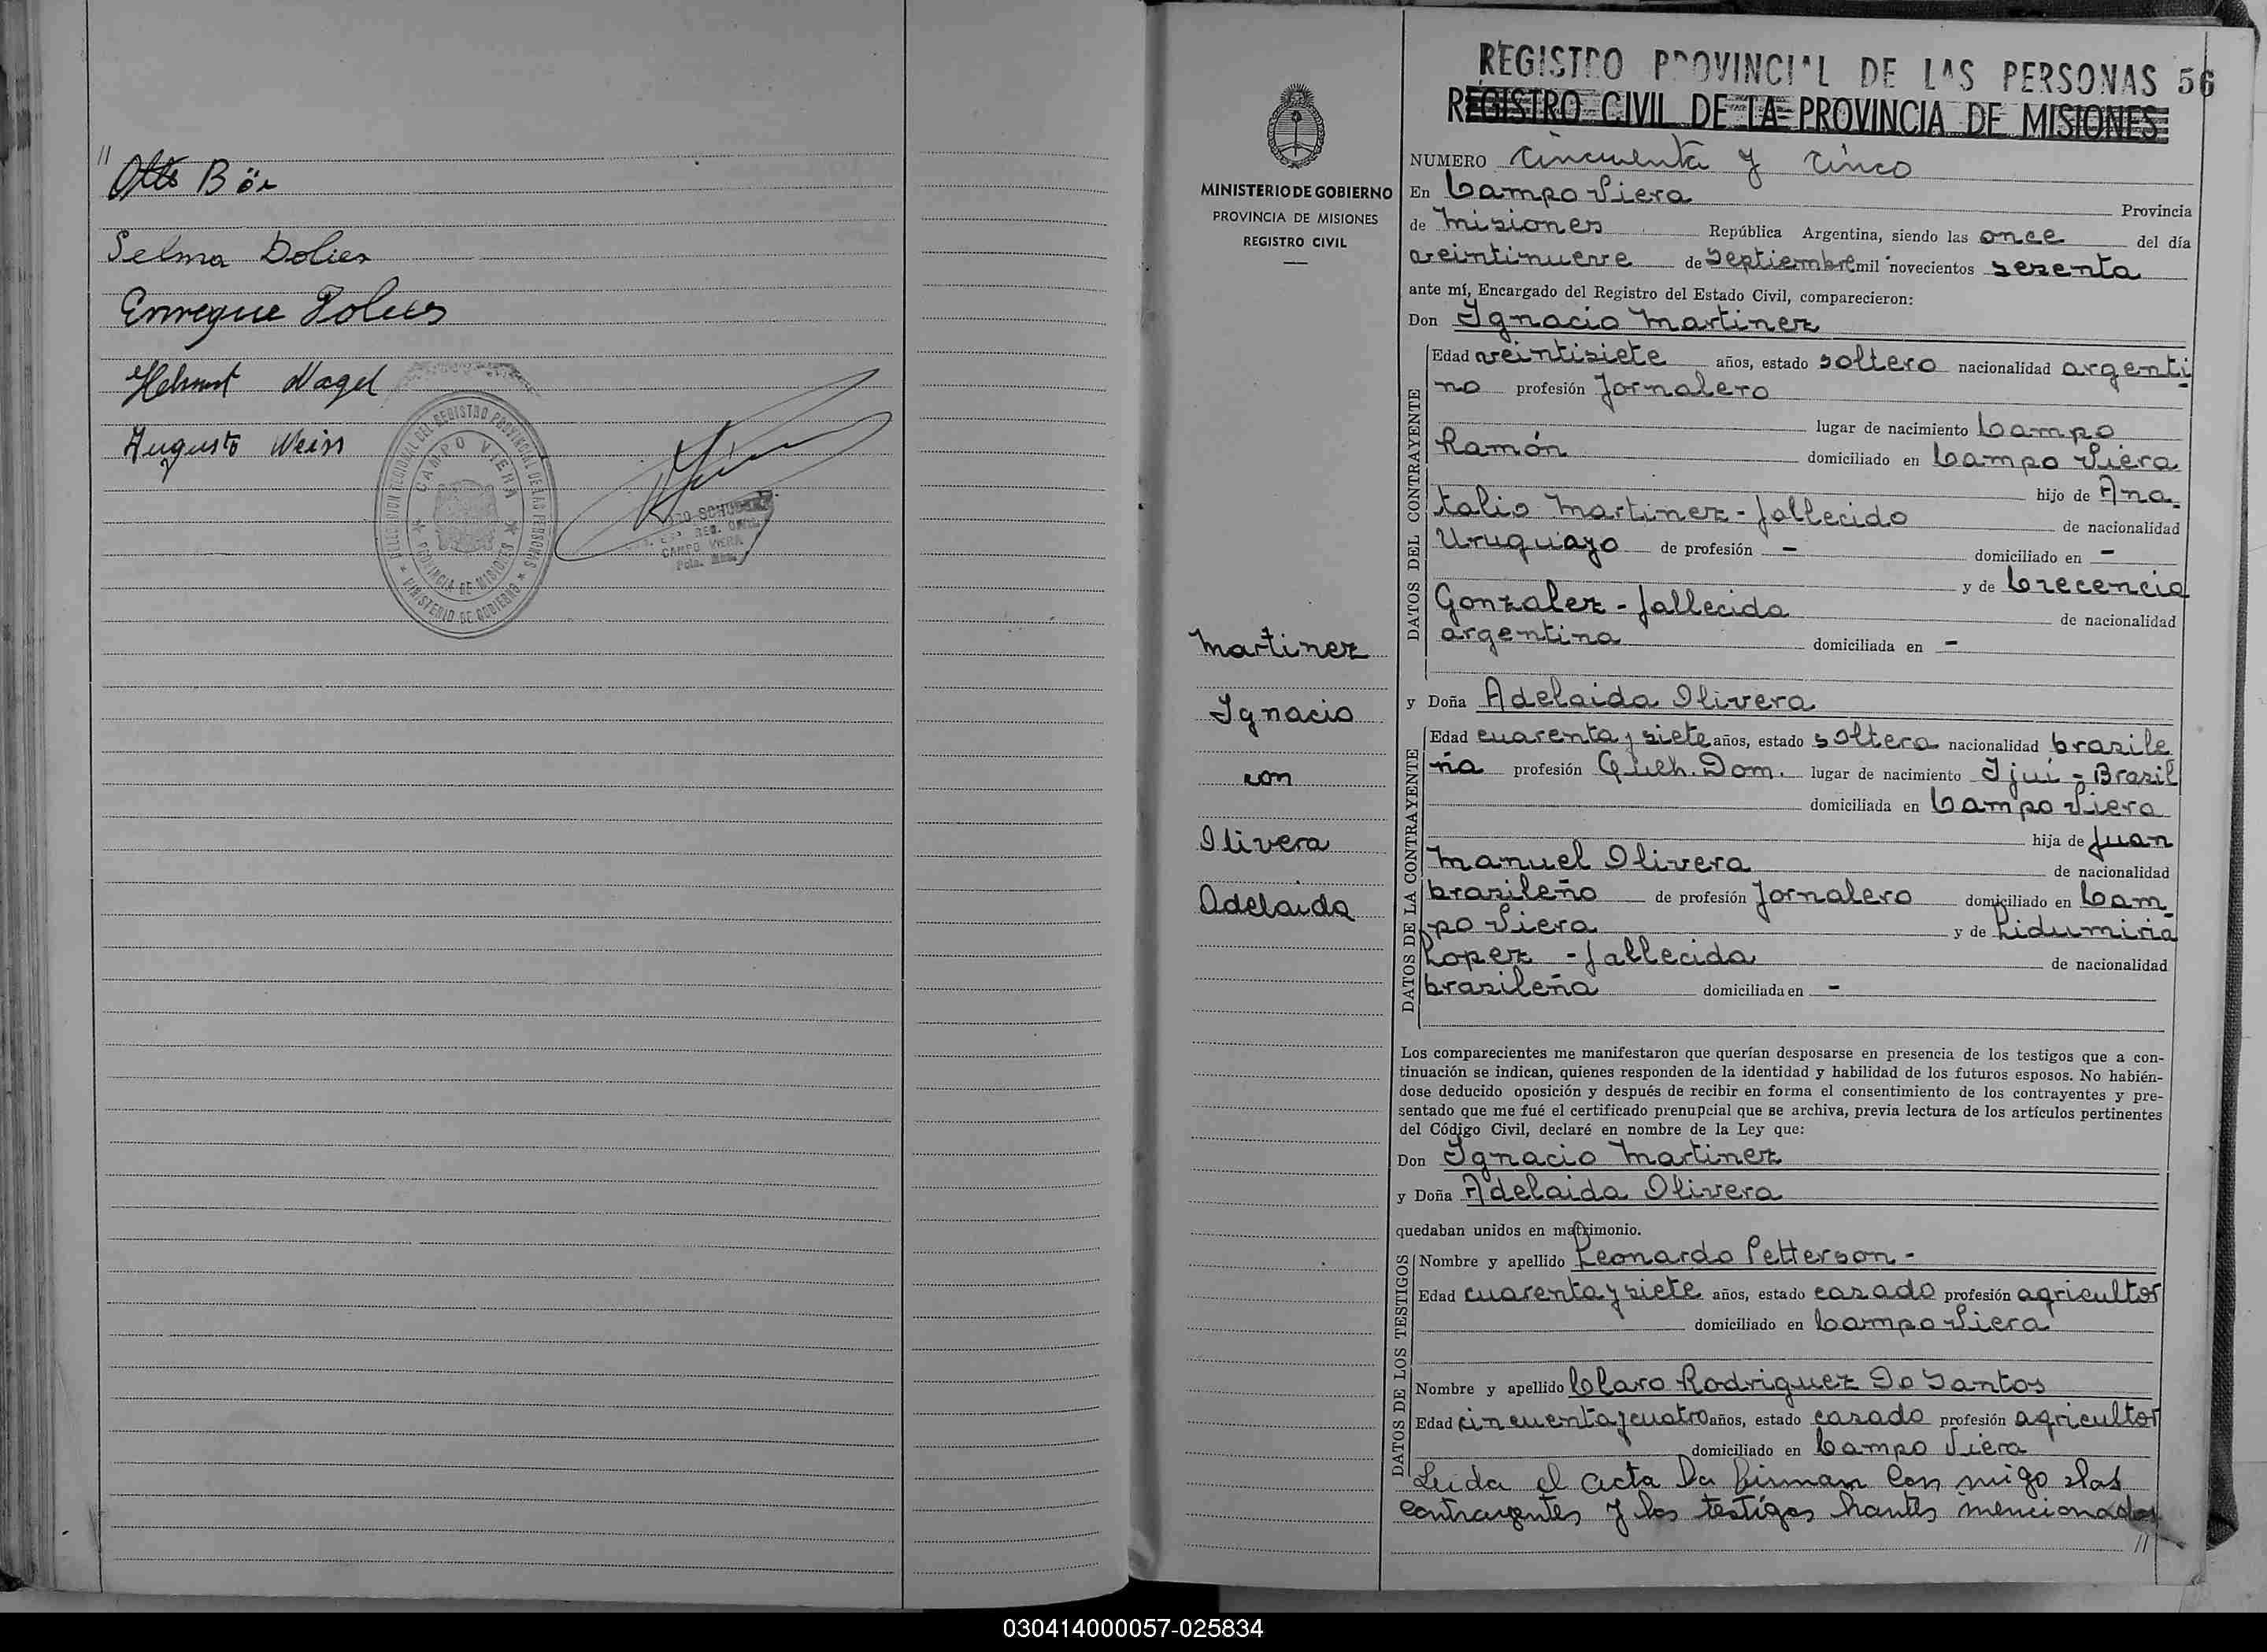 //
Otto Bör
Selma Dolies
Enrregue Dolies
Helmut Nagel
Augusto Weiss
DELEGACION REGIONAL DEL REGISTRO PROVINCIAL DE LAS PERSONAS
CAMPO VIERA
PROVINCIA DE MISIONES
MINISTERIO DE GOBIERNO
REG.
CAMPO VIERA
Pcia.
MINISTERIO DE GOBIERNO
PROVINCIA DE MISIONES
REGISTRO CIVIL
Martinez
Ignacio
con
Olivera
Adelaida
REGISTRO PROVINCIAL DE LAS PERSONAS 56
REGISTRO CIVIL DE LA PROVINCIA DE MISIONES
NUMERO Cincuenta y Cinco
En Campo Viera Provincia
de Misiones República Argentina, siendo las once del día
veintinueve de Septiembre mil novecientos sesenta
ante mí, Encargado del Registro del Estado Civil, comparecieron:
Don Ignacio Martinez
DATOS DEL CONTRAYENTE
Edad veintisiete años, estado soltero nacionalidad argenti
no profesión Jornalero
lugar de nacimiento Campo
Ramón domiciliado en Campo Viera
hijo de Ana-
talio Martinez - fallecido de nacionalidad
Uruguayo de profesión - domiciliado en -
y de Crecencia
Gonzalez - fallecida de nacionalidad
argentina domiciliada en -
y Doña Adelaida Olivera
DATOS DE LA CONTRAYENTE
Edad cuarenta y siete años, estado soltera nacionalidad brasile
ña profesión Queh. Dom. lugar de nacimiento Ijuí - Brasil
domiciliada en Campo Viera
hija de Juan
Manuel Olivera de nacionalidad
brasileño de profesión Jornalero domiciliado en Cam-
po Viera y de Lidumiria
Lopez - fallecida de nacionalidad
brasileña domiciliada en -
Los comparecientes me manifestaron que querían desposarse en presencia de los testigos que a con-
tinuación se indican, quienes responden de la identidad y habilidad de los futuros esposos. No habién-
dose deducido oposición y después de recibir en forma el consentimiento de los contrayentes y pre-
sentado que me fué el certificado prenupcial que se archiva, previa lectura de los artículos pertinentes
del Código Civil, declaré en nombre de la Ley que:
Don Ignacio Martinez
y Doña Adelaida Olivera
quedaban unidos en matrimonio.
DATOS DE LOS TESTIGOS
Nombre y apellido Leonardo Petterson -
Edad cuarenta y siete años, estado casado profesión agricultor
domiciliado en Campo Viera
Nombre y apellido Claro Rodriguez Do Santos
Edad cincuenta y cuatro años, estado casado profesión agricultor
domiciliado en Campo Viera
Leida el acta la firman con migo los
contrayentes y los testigos hantes mencionados
//
030414000057-025834